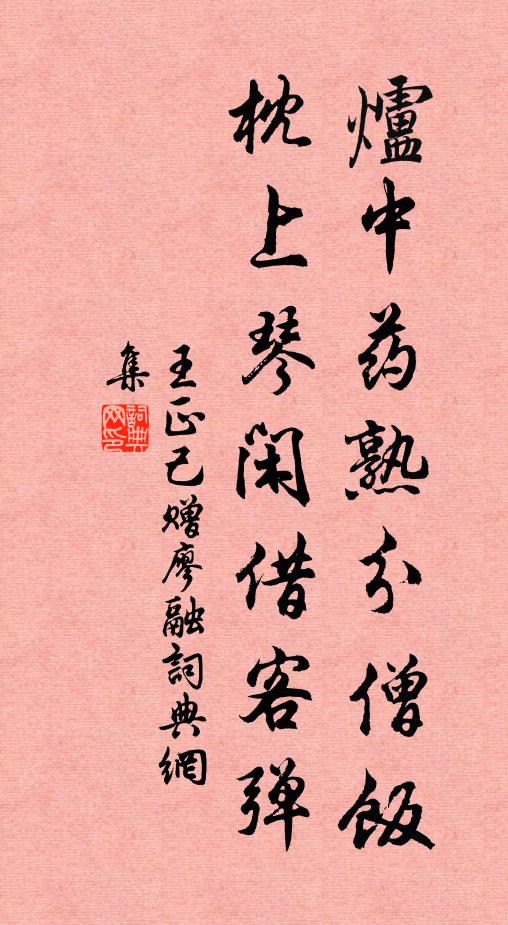 爐中药熟分僧飯
枕上琴閑借客彈
王正己赠廖融詞典網
集
詞典網印